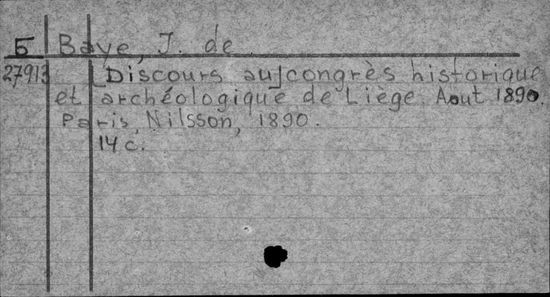 Б Baye, J. de
27913 [Discours au] congrès historique
et archéologique de Liège. Aout 1890.
Paris, Nilsson, 1890.
14 c.